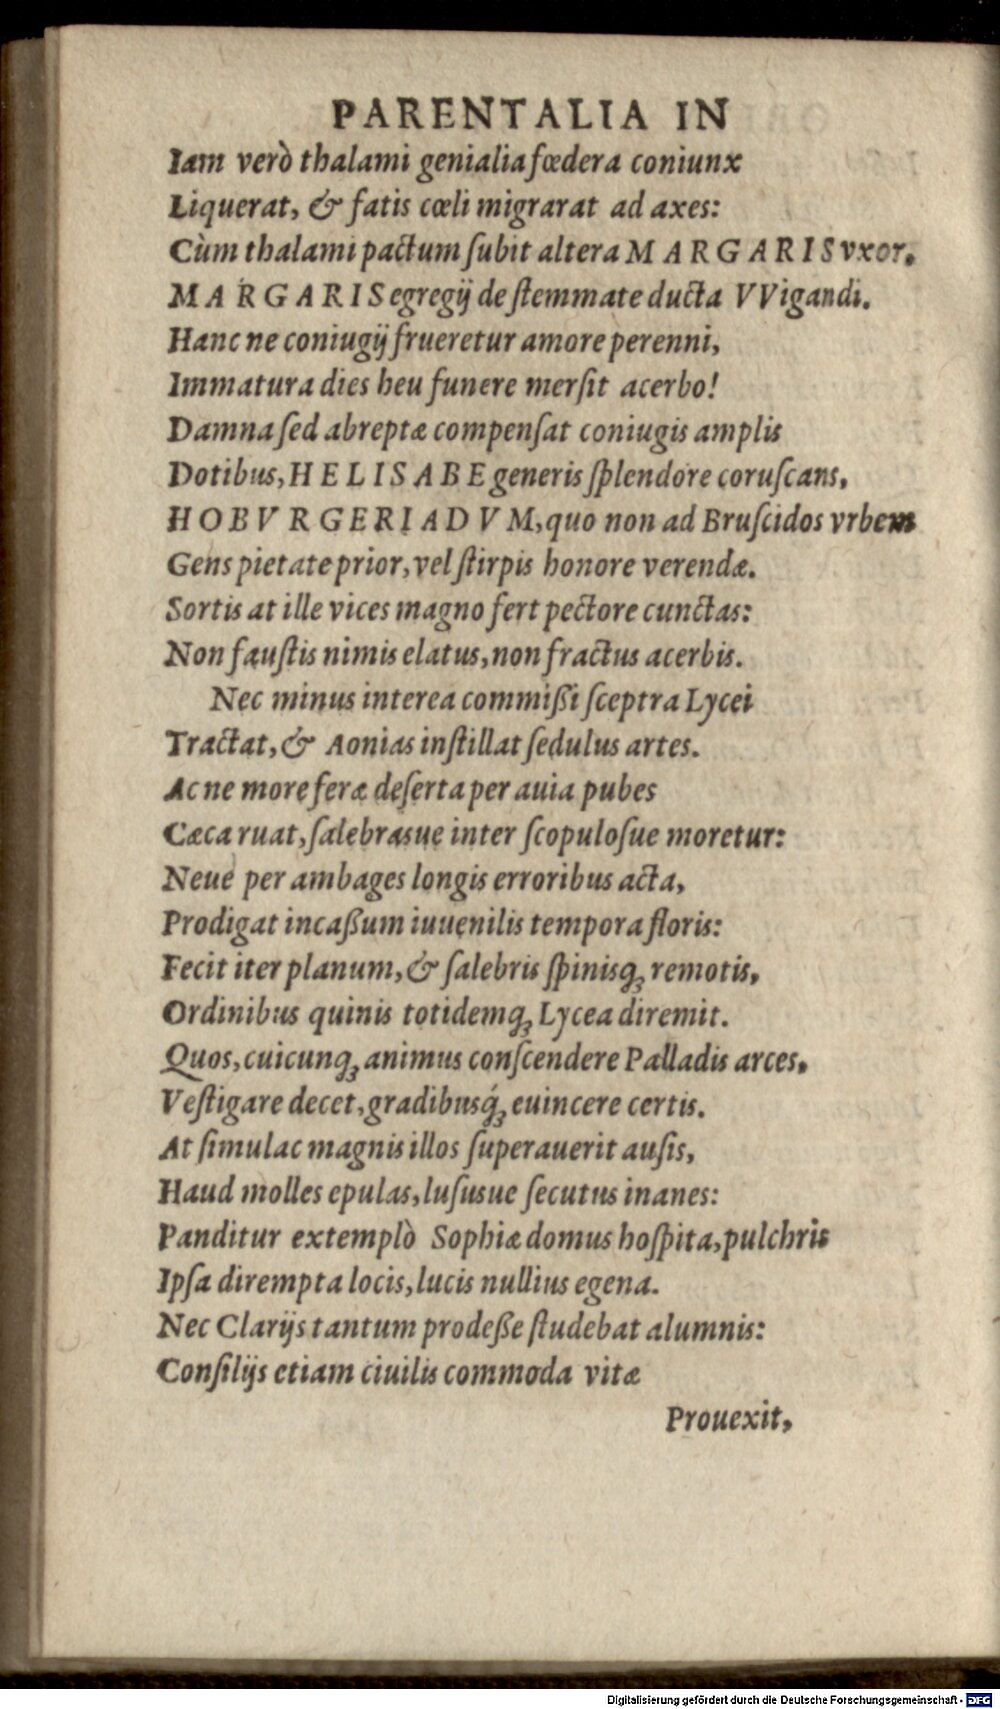 PARENTALIA IN
Iam verò thalami genialia fœdera coniunx
Liquerat, & fatis cœli migrarat ad axes:
Cùm thalami pactum ſubit altera MARGARIS vxor.
MARGARIS egregij de ſtemmate ducta VVigandi.
Hanc ne coniugij frueretur amore perenni,
Immatura dies heu funere merſit acerbo!
Damna ſed abreptæ compenſat coniugis amplis
Dotibus, HELISABE generis ſplendore coruſcans,
HOBVRGERIADVM, quo non ad Bruſcidos vrbem
Gens pietate prior, vel ſtirpis honore verendæ.
Sortis at ille vices magno fert pectore cunctas:
Non fauſtis nimis elatus, non fractus acerbis.
Nec minus interea commißi ſceptra Lycei
Tractat, & Aonias inſtillat ſedulus artes.
Ac ne more feræ deſerta per auia pubes
Cæca ruat, ſalebrasue inter ſcopuloſue moretur:
Neue per ambages longis erroribus acta,
Prodigat incaßum iuuenilis tempora floris:
Fecit iter planum, & ſalebris ſpinisq́ꝫ remotis,
Ordinibus quinis totidemqꝫ Lycea diremit.
Quos, cuicunqꝫ animus conſcendere Palladis arces,
Veſtigare decet, gradibusq́ꝫ euincere certis.
At ſimulac magnis illos ſuperauerit auſis,
Haud molles epulas, luſusue ſecutus inanes:
Panditur extemplò Sophiæ domus hoſpita, pulchris
Ipſa dirempta locis, lucis nullius egena.
Nec Clarijs tantum prodeße ſtudebat alumnis:
Conſilijs etiam ciuilis commoda vitæ
Prouexit,
Digitalisierung gefördert durch die Deutsche Forschungsgemeinschaft - DFG